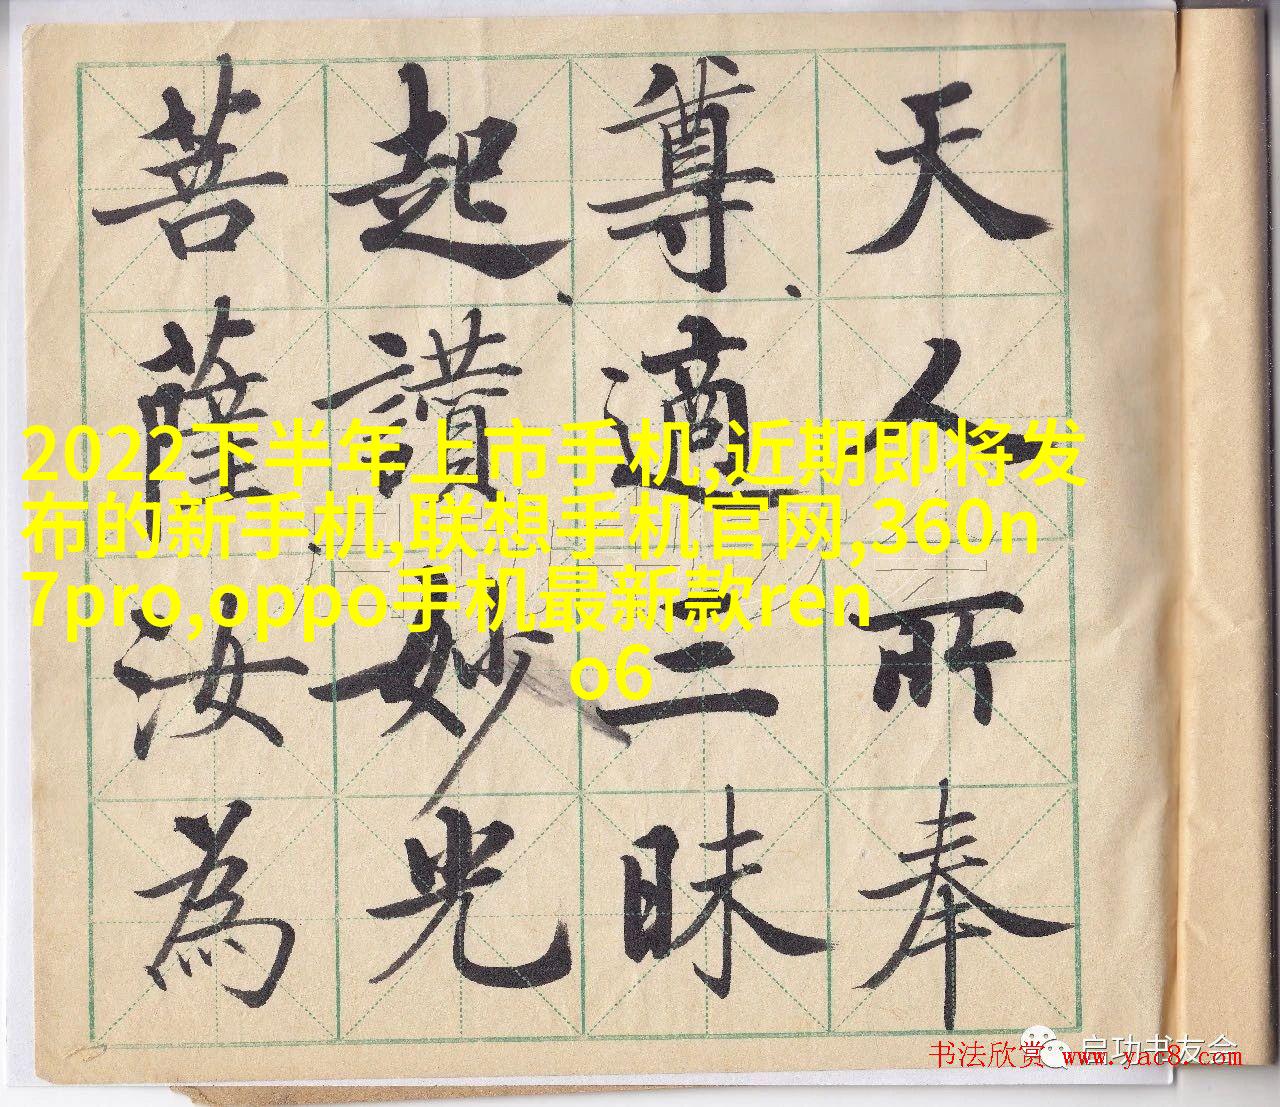 天人所奉
尊適三昧
起讃妙光
菩薩汝為
2022下半年上市手机,近期即将发
布的新手机,联想手机官网,360n
7pro,oppo手机最新款ren
o6
启功书友会
书法欣赏 www.yac8.com